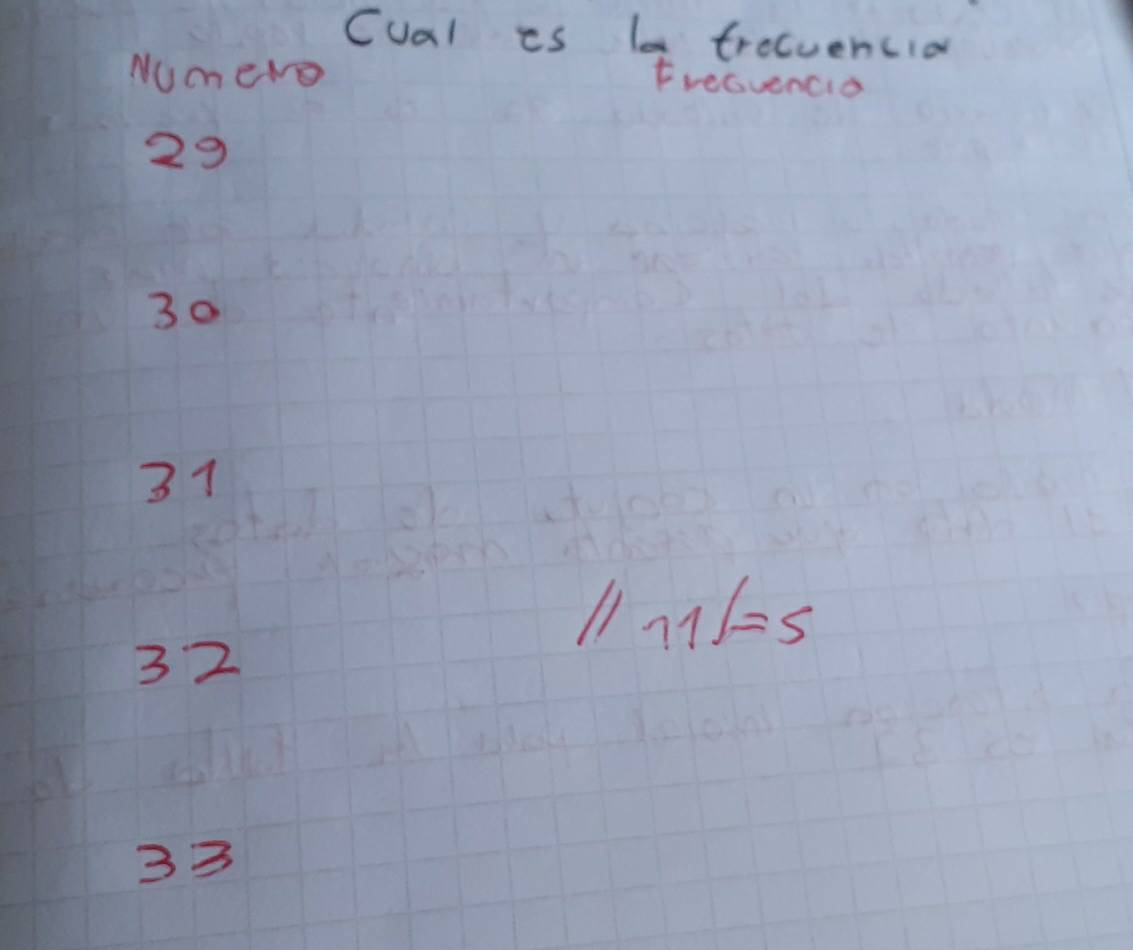 Cual es la frecuencia
Numero Frecuencia
29
30
31
32 // 111/=5
33